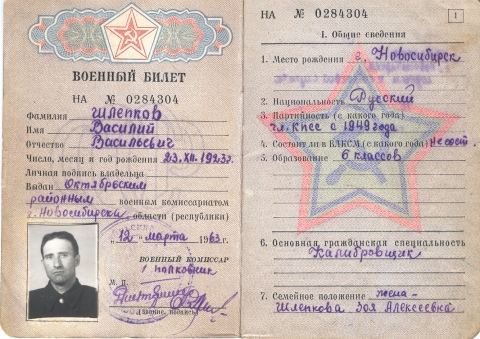 ВОЕННЫЙ БИЛЕТ
НА № 0284304
Фамилия Шлепков
Имя Василий
Отчество Васильевич
Число, месяц и год рождения 23. XII. 1923г.
Личная подпись владельца
Выдан Октябрьским
районным военным комиссариатом
г. Новосибирска области (республики)
„12" марта 1963г.
ВОЕННЫЙ КОМИССАР
полковник
М. п.
НА № 0284304
1
I. Общие сведения
1. Место рождения г. Новосибирск
2. Национальность Русский
3. Партийность (с какого года)
чл. КПСС с 1949 года
4. Состоял ли в ВЛКСМ (с какого года) не сост.
5. Образование 6 классов
6. Основная гражданская специальность
Калибровщик
7. Семейное положение жена-
Шлепкова Зоя Алексеевна